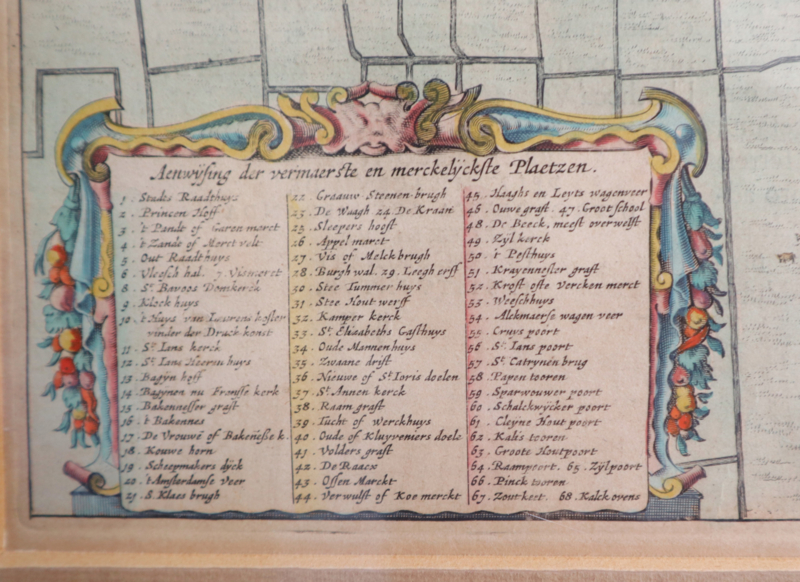 Aenwÿsing der vermaerste en merckelÿckste Plaetzen.
1 . Stadts Raadthuys
2 . Princen Hoff
3 . 't Pandt of Garen merct
4 . 't Zandt of Merct velt
5 . Out Raadthuys
6 . Vleesch hal. 7. Vismerct
8 . St. Bavoos Domkerck
9 . Klock huys
10 . 't Huys van Laurens koster
vinder der Druck konst
11 . St. Ians kerck
12 . St. Ians Heeren huys
13 . Bagÿn hoff
14 . Bagynen nu Franse kerk
15 . Bakenesser graft
16 . 't Bakennes
17 . De Vrouwe of Bakenesse k.
18 . Kouwe horn
19 . Scheepmakers dÿck
20 . 't Amsterdamse veer
21 . S. Klaes brugh
22 . Graauw Steenen brugh
23 . De Waagh 24. De Kraan
25 . Sleepers hooft
26 . Appel marct
27 . Vis of Melckbrugh
28 . Burgh wal. 29. Leegh erff
30 . Stee Timmer huys
31 . Stee Hout werff
32 . Kamper kerck
33 . St. Elisabeths Gasthuys
34 . Oude Mannenhuys
35 . Zwaane drift
36 . Nieuwe of St Ioris doelen
37 . St. Annen kerck
38 . Raam graft
39 . Tucht of Werckhuys
40 . Oude of Kluyveniers doele
41 . Volders graft
42 . De Raacx
43 . Ossen Marckt
44 . Verwulft of Koe merckt
45 . Haaghs en Leyts wagenveer
46 . Ouwe graft. 47. Groot school
48 . De Beeck, meest overwelft
49 . Zÿl kerck
50 . 't Pesthuys
51 . Krayennester graft
52 . Kroft ofte Vercken merct
53 . Weeschhuys
54 . Alckmaerse wagen veer
55 . Cruys poort
56 . St. Ians poort
57 . St. Catrynen brug
58 . Papen tooren
59 . Sparwouwer poort
60 . Schalckwÿcker poort
61 . Cleyne Hout poort
62 . Kalis tooren
63 . Groote Houtpoort
64 . Raampoort. 65. Zÿlpoort
66 . Pinck tooren
67 . Zoutkeet. 68. Kalck ovens